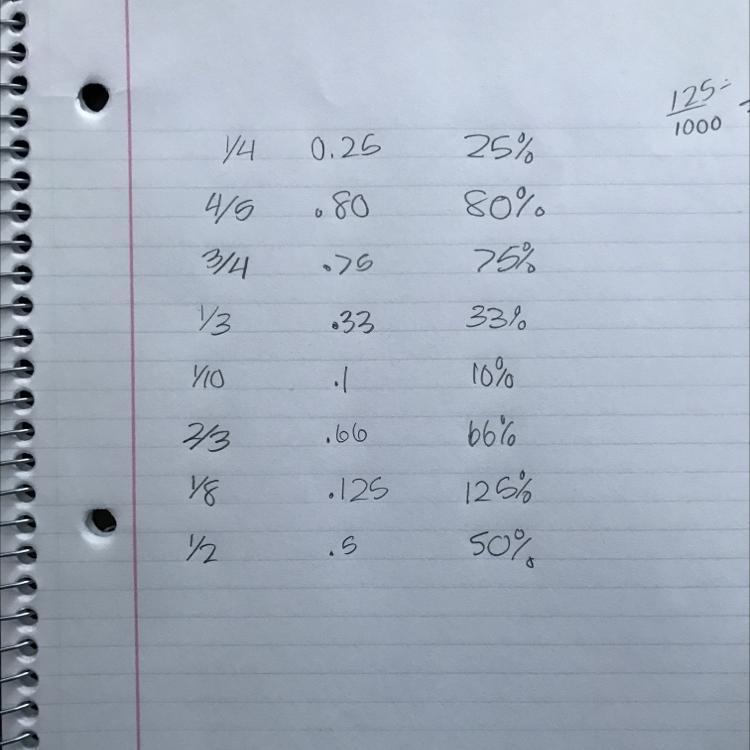 125 ÷
1000
1/4 0.25 25%
4/5 .80 80%
3/4 .75 75%
1/3 .33 33%
1/10 .1 10%
2/3 .66 66%
1/8 .125 125%
1/2 .5 50%